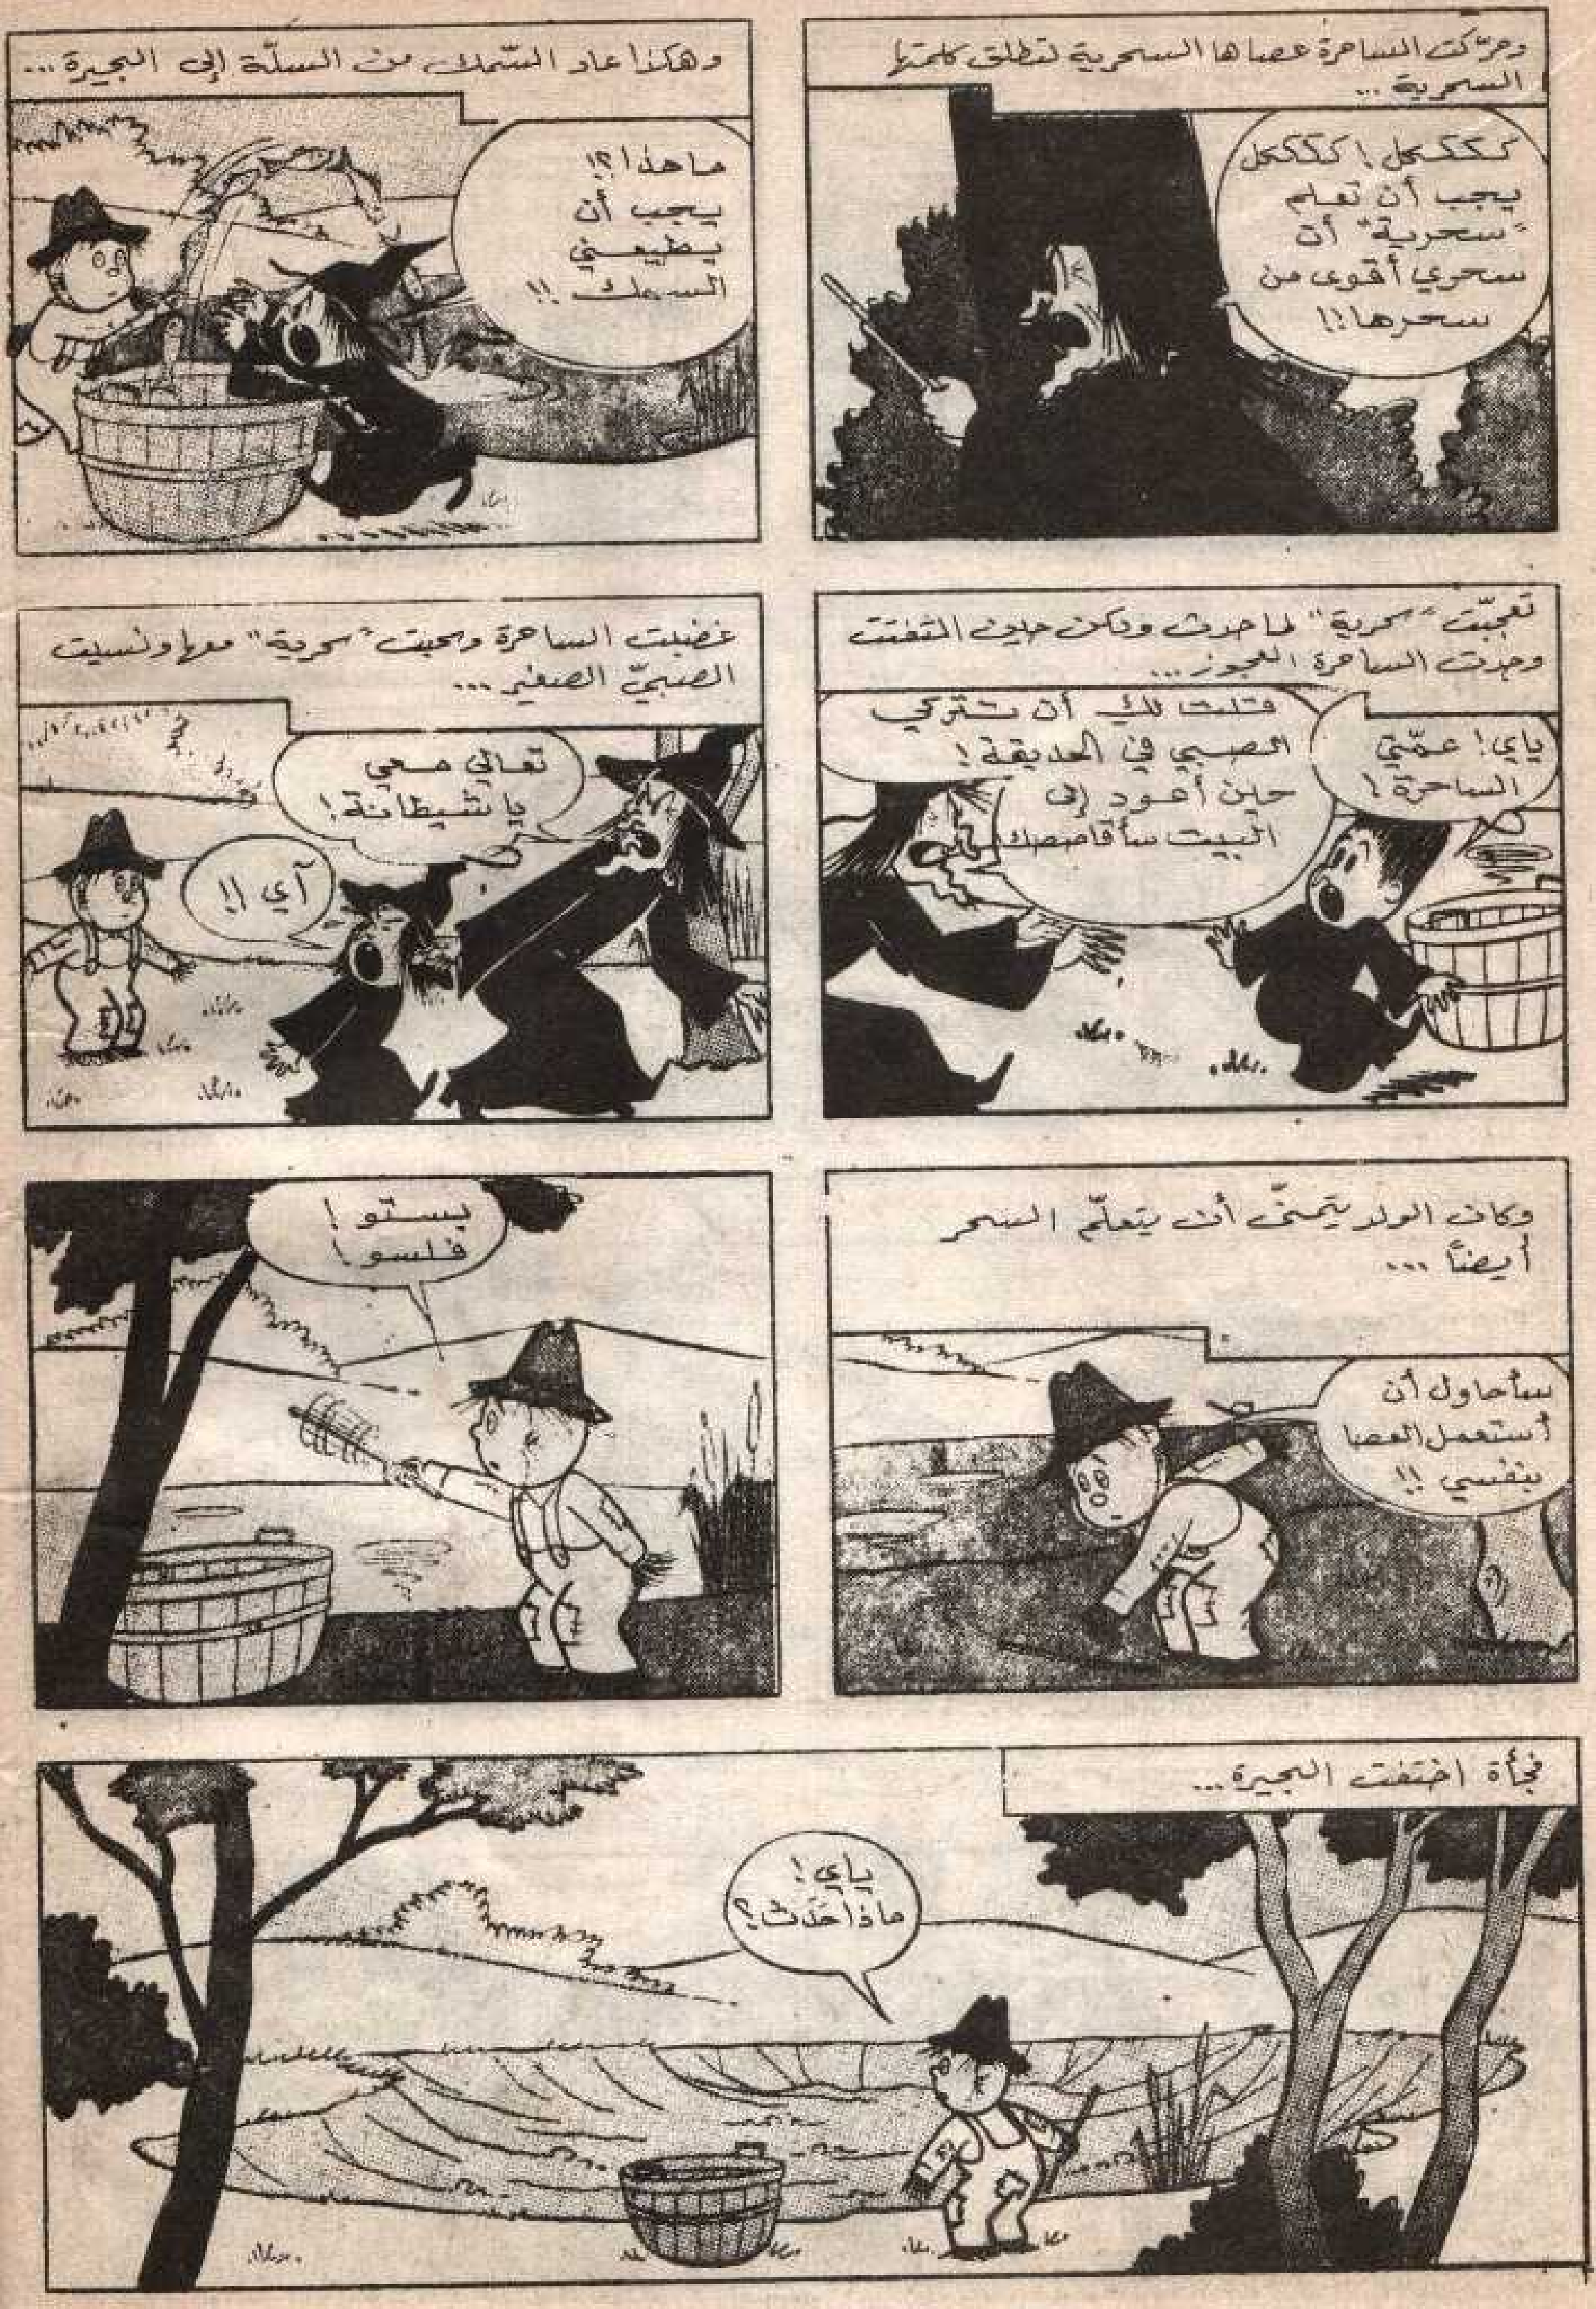 وحرّكت الساحرة عصاها السحرية لتطلق كلمتها
السحرية ...
كككـكل ! كككـكل
يجب أن تعلم
"سحرية" أن
سحري أقوى من
سحرها !!
وهكذا عاد السّمك من السلّة إلى البحيرة ...
ما هذا ؟!
يجب أن
يطيعني
السمك !!
تعجّبت "سحرية" لما حدث ولكن حين التفتت
وجدت الساحرة العجوز ...
ياي ! عمّتي
الساحرة !
قلت لك أن تتركي
الصبي في الحديقة !
حين أعود إلى
البيت سأقاصصك
غضبت الساحرة وسحبت "سحرية" معها ونسيت
الصبيّ الصغير ...
تعالي معي
يا شيطانة !
آي !!
وكان الولد يتمنّى أن يتعلّم السحر
أيضاً ...
سأحاول أن
أستعمل العصا
بنفسي !!
بستو !
فلسو !
فجأة اختفت البحيرة ...
ياي !
ماذا حَدَث ؟